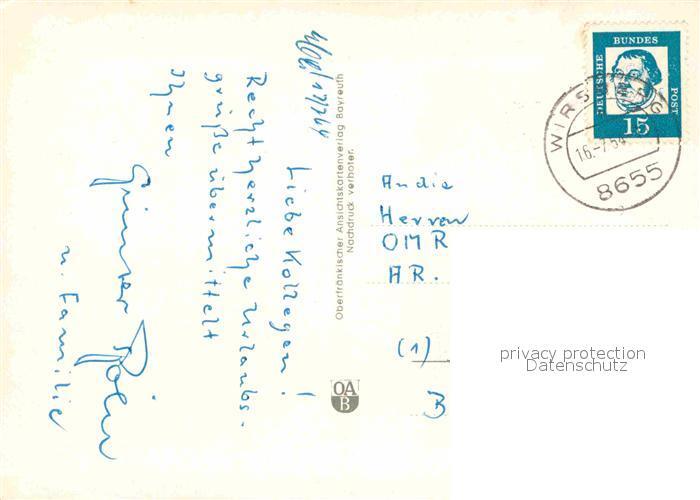 Liebe Kollegen!
Recht herzliche Urlaubs-
grüße übermittelt
Ihnen
Günter
u. Familie
Oberfränkischer Ansichtskartenverlag Bayreuth
Nachdruck verboten.
OA
B
DEUTSCHE
BUNDES
POST
15
WIRSBERG
8655
An die
Herren
OMR
AR.
(1)
B
privacy protection
Datenschutz